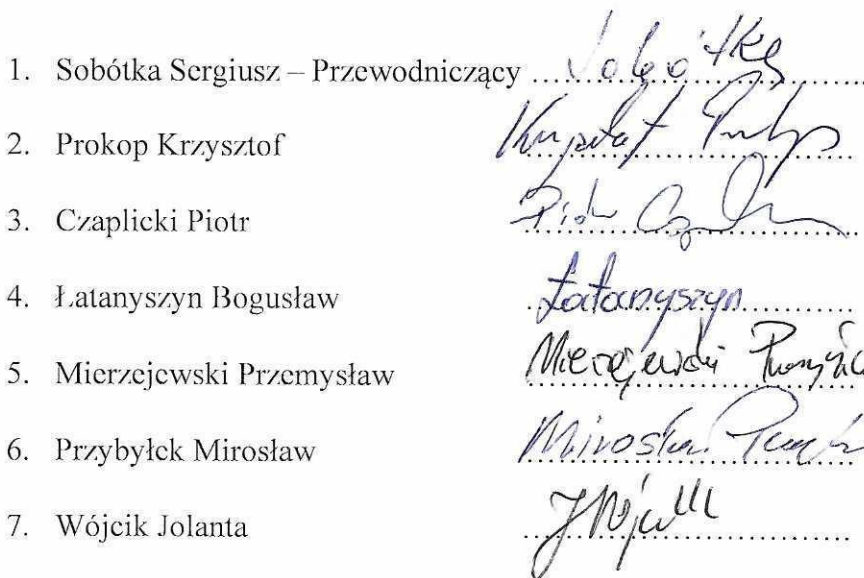 1. Sobótka Sergiusz – Przewodniczący ... Sobótka
2. Prokop Krzysztof Krzysztof Prokop
3. Czaplicki Piotr Piotr
4. Łatanyszyn Bogusław Łatanyszyn
5. Mierzejewski Przemysław Mierzejewski
6. Przybyłek Mirosław Mirosław
7. Wójcik Jolanta J Wójcik